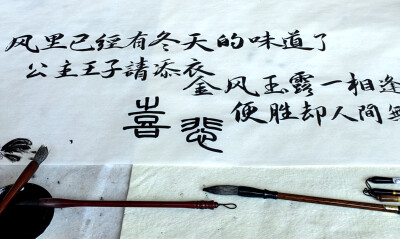 风里已經有冬天的味道了
公主王子請添衣
金风玉露一相逢
便胜却人间
喜悲